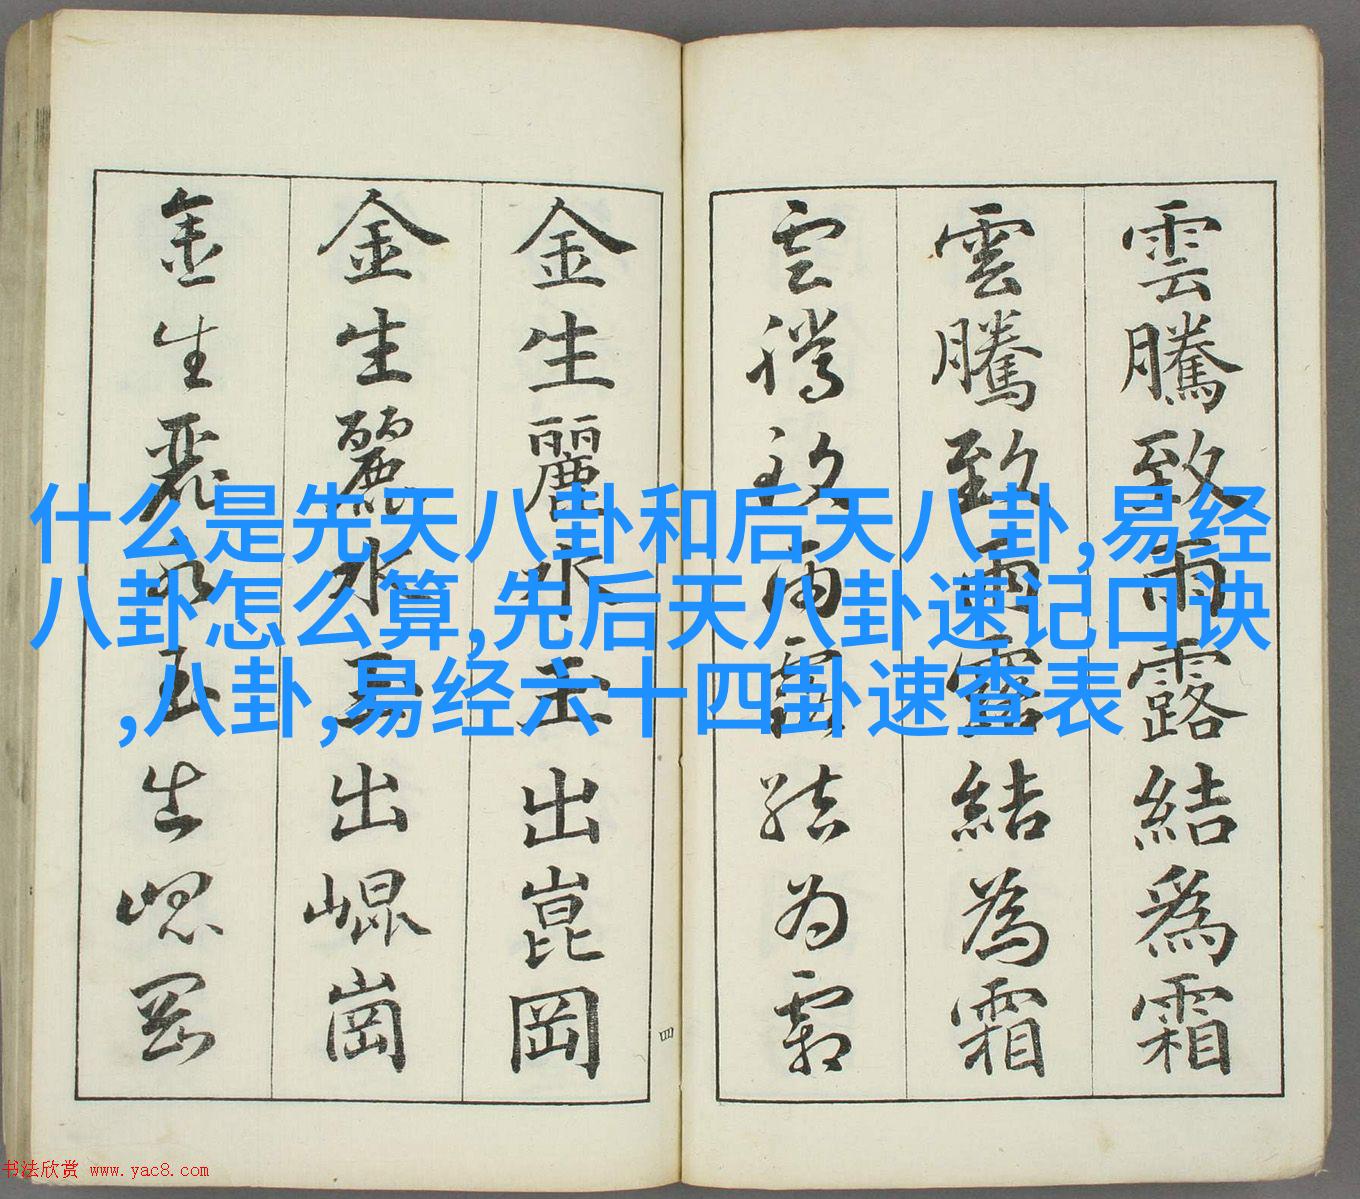 雲騰致雨露結爲霜
雲騰致雨露結為霜
雲騰致雨露結为霜
金生麗水玉出崑岡
金生麗水玉出崐崗
金生麗水玉出崐岡
四
什么是先天八卦和后天八卦,易经
八卦怎么算,先后天八卦速记口诀
,八卦,易经六十四卦速查表
书法欣赏 www.yac8.com